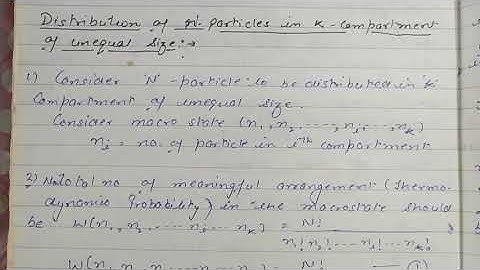 Distribution of n-particles in k-compartment
of unequal size:→
1) Consider 'N'-particle to be distributed in 'k'
Compartment of unequal size.
Consider macro state (n₁, n₂, ----, nᵢ, --- nₖ)
nᵢ = no. of particle in iᵗʰ compartment
2) Total no of meaningful arrangement (Thermo-
dynamic Probability) in the macrostate should
be W(n₁, n₂, ---- nᵢ -- nₖ) = N!
n₁! n₂! ---- nᵢ! --- nₖ!
W(n₁, n₂, nᵢ nₖ) = N! —①